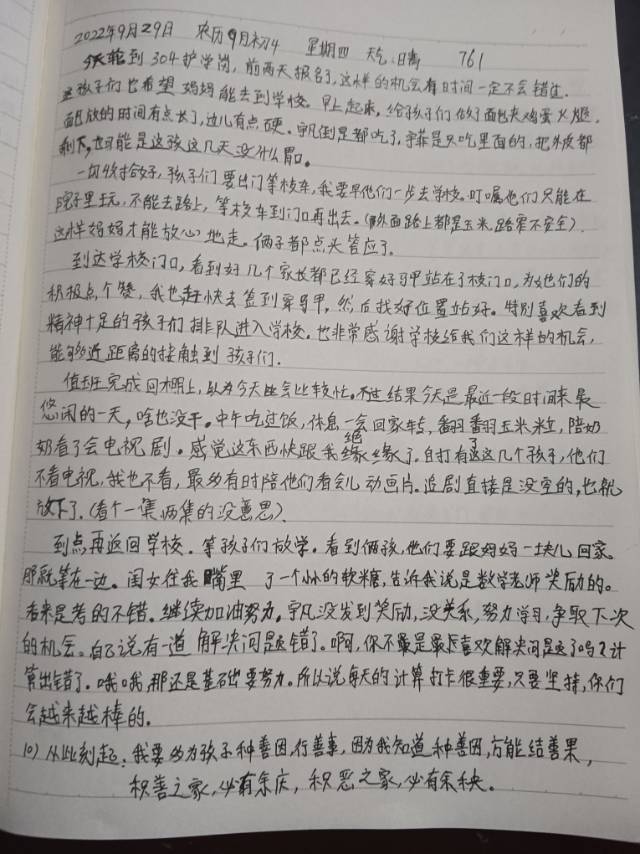 2022年9月29日 农历9月初4 星期四 天气:晴 761
今天轮到304护学岗,前两天报名了,这样的机会有时间一定不会错过.
孩子们也希望妈妈能去到学校。早上起来,给孩子们做了面包夹鸡蛋火腿.
面包放的时间有点长了,边儿有点硬。宇凡倒是都吃了,宇菲是只吃里面的,把外皮都
剩下,也可能是这孩这几天没什么胃口。
一切收拾好,孩子们要出门等校车,我要早他们一步去学校。叮嘱他们只能在
院子里玩,不能去路上,等校车到门口再出去。(外面路上都是玉米,路窄不安全).
这样妈妈才能放心地走。俩子都点头答应了.
到达学校门口,看到好几个家长都已经穿好马甲站在了校门口,为她们的
积极点个赞,我也赶快去签到穿马甲,然后找好位置站好。特别喜欢看到
精神十足的孩子们排队进入学校。也非常感谢学校给我们这样的机会,
能够近距离的接触到孩子们.
值班完成回棚上,以为今天也会比较忙,不过结果今天是最近一段时间来最
悠闲的一天,啥也没干。中午吃过饭,休息一会回家转,翻翻玉米粒,陪奶
奶看了会电视剧。感觉这东西快跟我绝缘了.自打有了这几个孩子,他们
不看电视,我也不看,最多有时陪他们看会儿动画片。追剧直接是没空的,也就
放下了.(看个一集两集的没意思).
到点再返回学校.等孩子们放学。看到俩孩,他们要跟妈妈一块儿回家.
那就等在一边。闺女往我嘴里了一个小小的软糖,告诉我说是数学老师奖励的。
看来是考的不错.继续加油努力。宇凡没发到奖励,没关系,努力学习,争取下次
的机会。自己说有一道解决问题错了。啊,你不是最喜欢解决问题了吗?计
算出错了。哦哦,那还是基础要努力。所以说每天的计算打卡很重要,只要坚持,你们
会越来越棒的.
10)从此刻起:我要多为孩子种善因,行善事,因为我知道种善因,方能结善果,
积善之家,必有余庆,积恶之家,必有余殃。